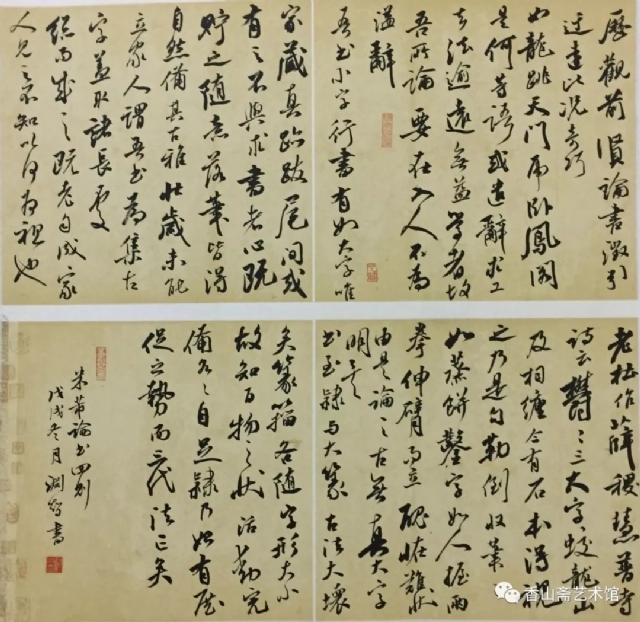 歷觀前賢論書徵引
迂遠比況奇巧
如龍跳天門虎卧鳳閣
是何等語或遣辭求工
去法逾遠無益學者故
吾所論要在入人不為
溢辭
吾書小字行書有如大字唯
家藏真跡跋尾間或
有之不與求書者心既
貯之隨意落筆皆得
自然備其古雅壯歲未能
立家人謂吾書為集古
字蓋取諸長處
總而成之既老自成家
人見之不知以何為祖也
老杜作薛稷慧普寺
詩云鬱〻三大字蛟龍山
及相纏今有石本得視
之乃是勾勒倒收筆
如蒸餅鏨字如人握兩
拳伸臂而立醜怪難狀
由是論之古無真大字
明矣
書至隸与大篆古法大壞
矣篆籀各隨字形大小
故知百物之狀活動完
備各〻自足隸乃始有展
促之勢而三代法亡矣
米芾論書四則
戊戌冬月書
香山斋艺术馆